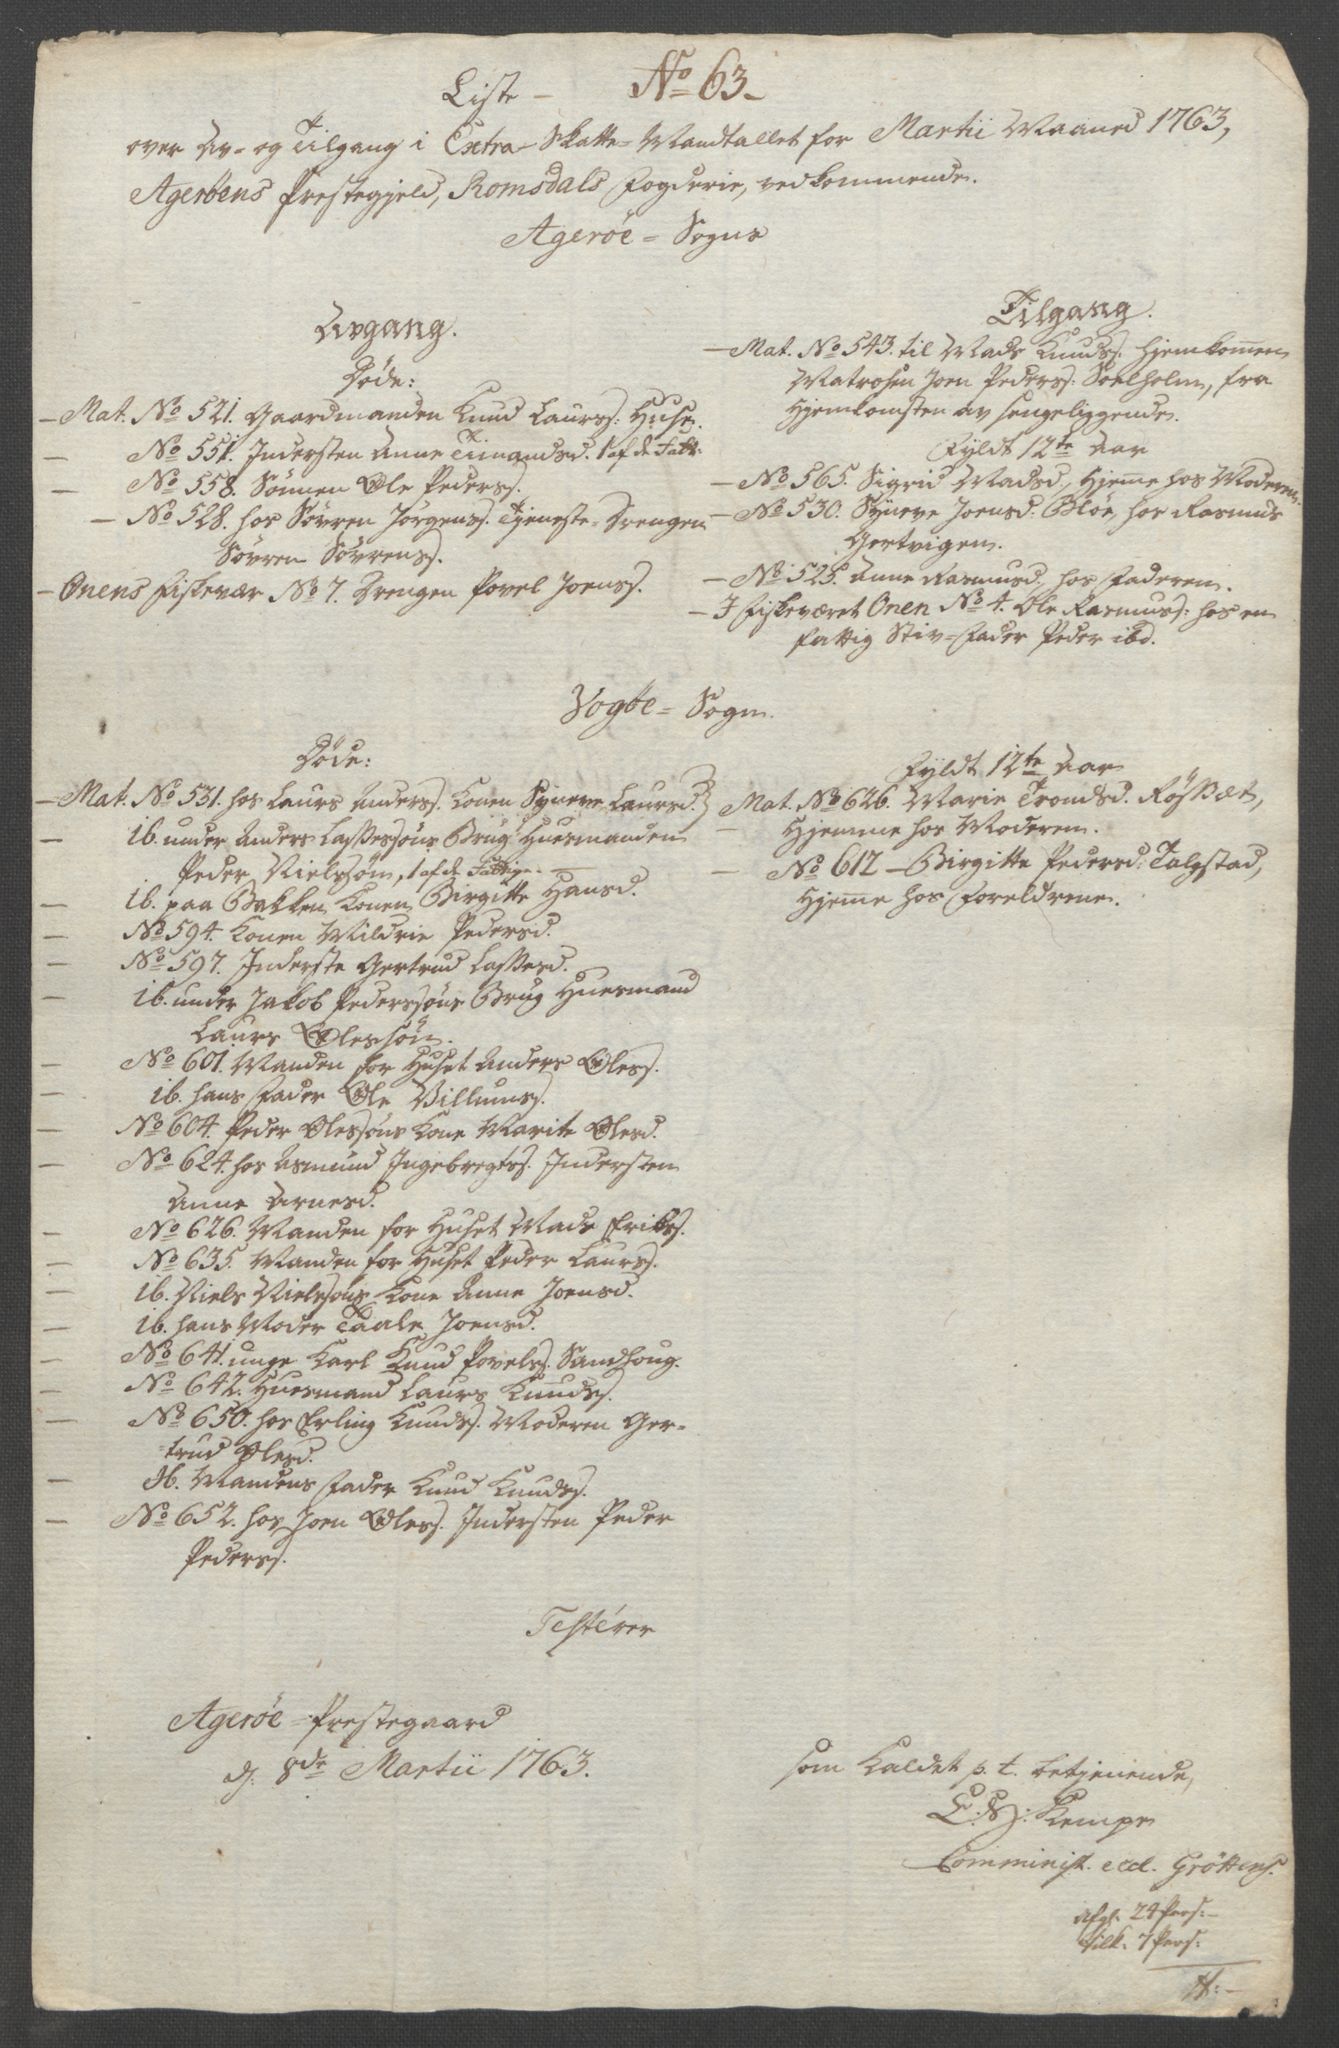 Liste - No 63.
over Av- og Tilgang i Extra-Skatte-Mandtallet for Martii Maaned 1763,
Agerøens Prestegjeld, Romsdals Fogderie, vedkommende.
Agerøe-Sogn
Avgang.
Døde:
- Mat. No 521. Gaardmanden Knud Laurss: Huse.
- No 551. Indersten Anne Timandsd. 1 af de Fatt:
- No 558. Sønnen Ole Pederss.
- No 528. hos Søvren Jørgenss. Tjeneste-Drengen
Søvren Søvrens.
- Onens Fiskevær No 7. Drengen Povel Joenss.
Tilgang.
- Mat. No 543. til Mads Knudss: hjemkommen
Matrosen Joen Pederss: Soelholm, fra
Hjemkomsten av sengeliggende.
Fyldt 12te Aar
- No 565. Sigrid Madsd, Hjemme hos Moderen.
- No 530. Syneve Joensd: Bløe, hos Rasmus
Gertvigen.
- No 525. Anne Rasmusd. hos Faderen.
- I Fiskeværet Onen No 4. Ole Rasmuss: hos en
fattig Stiv-Fader Peder ibd.
Vogøe-Sogn.
Døde:
- Mat. No 531. hos Laurs Anderss. Konen Syneve Laursd.
- ib. under Anders Lassessøns Brug Huesmanden
Peder Nielssøn, 1 af de Fattige.
- ib. paa Bakken Konen Birgitte Hansd.
- No 594. Konen Mildrie Pedersd.
- No 597. Inderste Gertrud Lassesd.
- ib. under Jakob Pederssøns Brug Huesmand
Laurs Olessøn.
- No 601. Manden for Huset Anders Oless.
- ib. hans Fader Ole Villums.
- No 604. Peder Olessøns Kone Marite Olesd.
- No 624. hos Asmund Ingebregtss. Indersten
Anne Arnesd.
- No 626. Manden for Huset Mads Erikss.
- No 635. Manden for Huset Peder Laurss.
- ib. Niels Nielssøns Kone Anne Joensd.
- ib. hans Moder Taale Joensd.
- No 641. unge Karl Knud Povelss. Sandhoug.
- No 642. Huesmand Laurs Knudss.
- No 650. hos Erling Knudss. Moderen Ger-
trud Olesd.
- Ib. Mandens Fader Knud Knudss.
- No 652. hos Joen Oless. Indersten Peder
Pederss.
Fyldt 12te Aar
Mat. No 626. Marie Trondsd. Røssæt,
- Hjemme hos Moderen.
- No 612 - Birgitte Pedersd: Talgstad,
Hjemme hos Foreldrene.
Testérer
Agerøe-Prestegaard
d. 8de Martii 1763.
som Kaldet p. t. betjenende,
E: H: Kempe
Comminist. eccl. Grøttens.
Afg. 24 Pers: -
Tilk. 7 Pers: